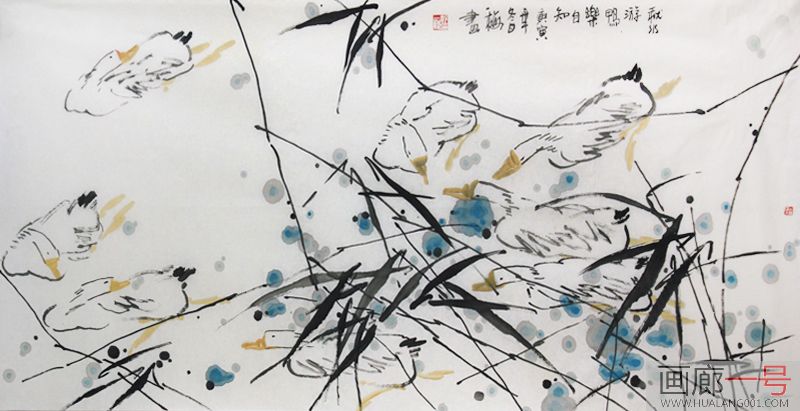 秋水游鸭樂自知庚寅年冬日
畫
画廊一号
WWW.HUALANG001.COM